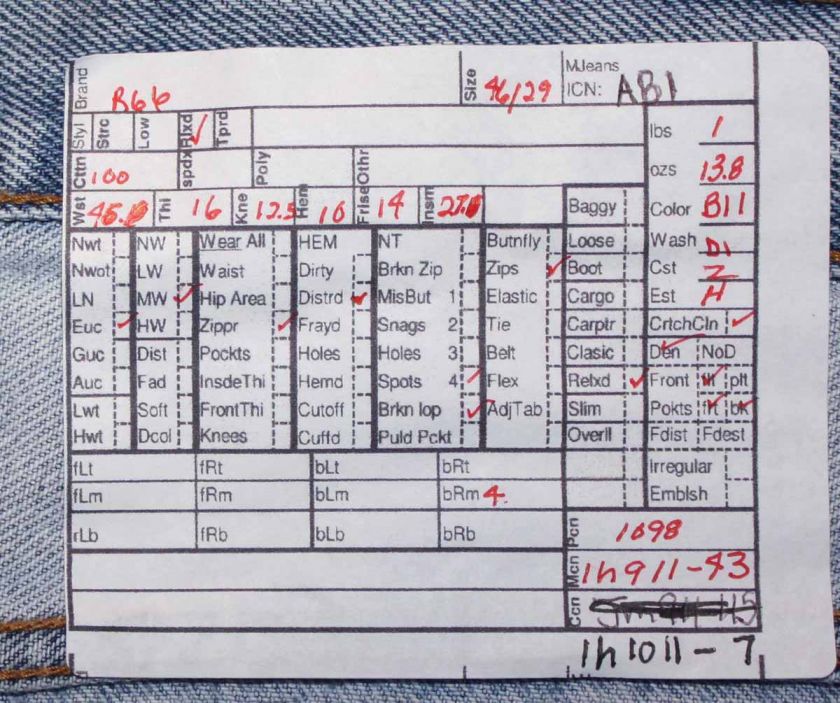 Brand R66 Size 46/29 MJeans
ICN: AB1
Styl Strc Low Rlxd ✓ Tprd lbs 1
Cttn 100 spdx Poly Othr ozs 13.8
Wst Thi 16 Kne 12.5 Hem 10 Frise 14 Insm Baggy Color B11
Nwt NW Wear All HEM NT Butnfly Loose Wash D1
Nwot LW Waist Dirty Brkn Zip Zips ✓ Boot Cst Z
LN MW ✓ Hip Area Distrd ✓ MisBut 1 Elastic Cargo Est H
Euc ✓ HW Zippr ✓ Frayd Snags 2 Tie Carptr CrtchCln ✓
Guc Dist Pockts Holes Holes 3 Belt Clasic Den ✓ NoD
Auc Fad InsdeThi Hemd Spots 4 ✓ Flex Relxd ✓ Front plt
Lwt Soft FrontThi Cutoff Brkn lop ✓ AdjTab Slim Pokts frt ✓ bk ✓
Hwt Dcol Knees Cuffd Puld Pckt Overll Fdist Fdest
fLt fRt bLt bRt Irregular
fLm fRm bLm bRm 4 Emblsh
rLb fRb bLb bRb Pcn 1098
Mcn 1h911-43
Ccn
1h1011-7